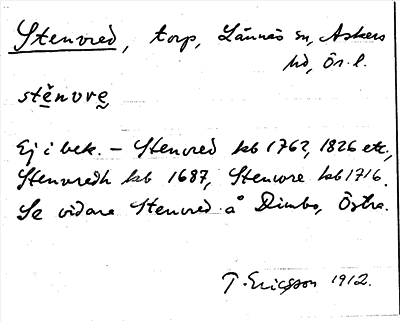 Stenvred, torp, Lännäs sn, Askers
hd, Ör. l.
stěnvrę
Ej i bek. – Stenvred kb 1762, 1826 etc,
Stenvredh kb 1687, Stenvre kb 1716.
Se vidare Stenvred å Dimbo, Östra.
T. Ericsson 1912.